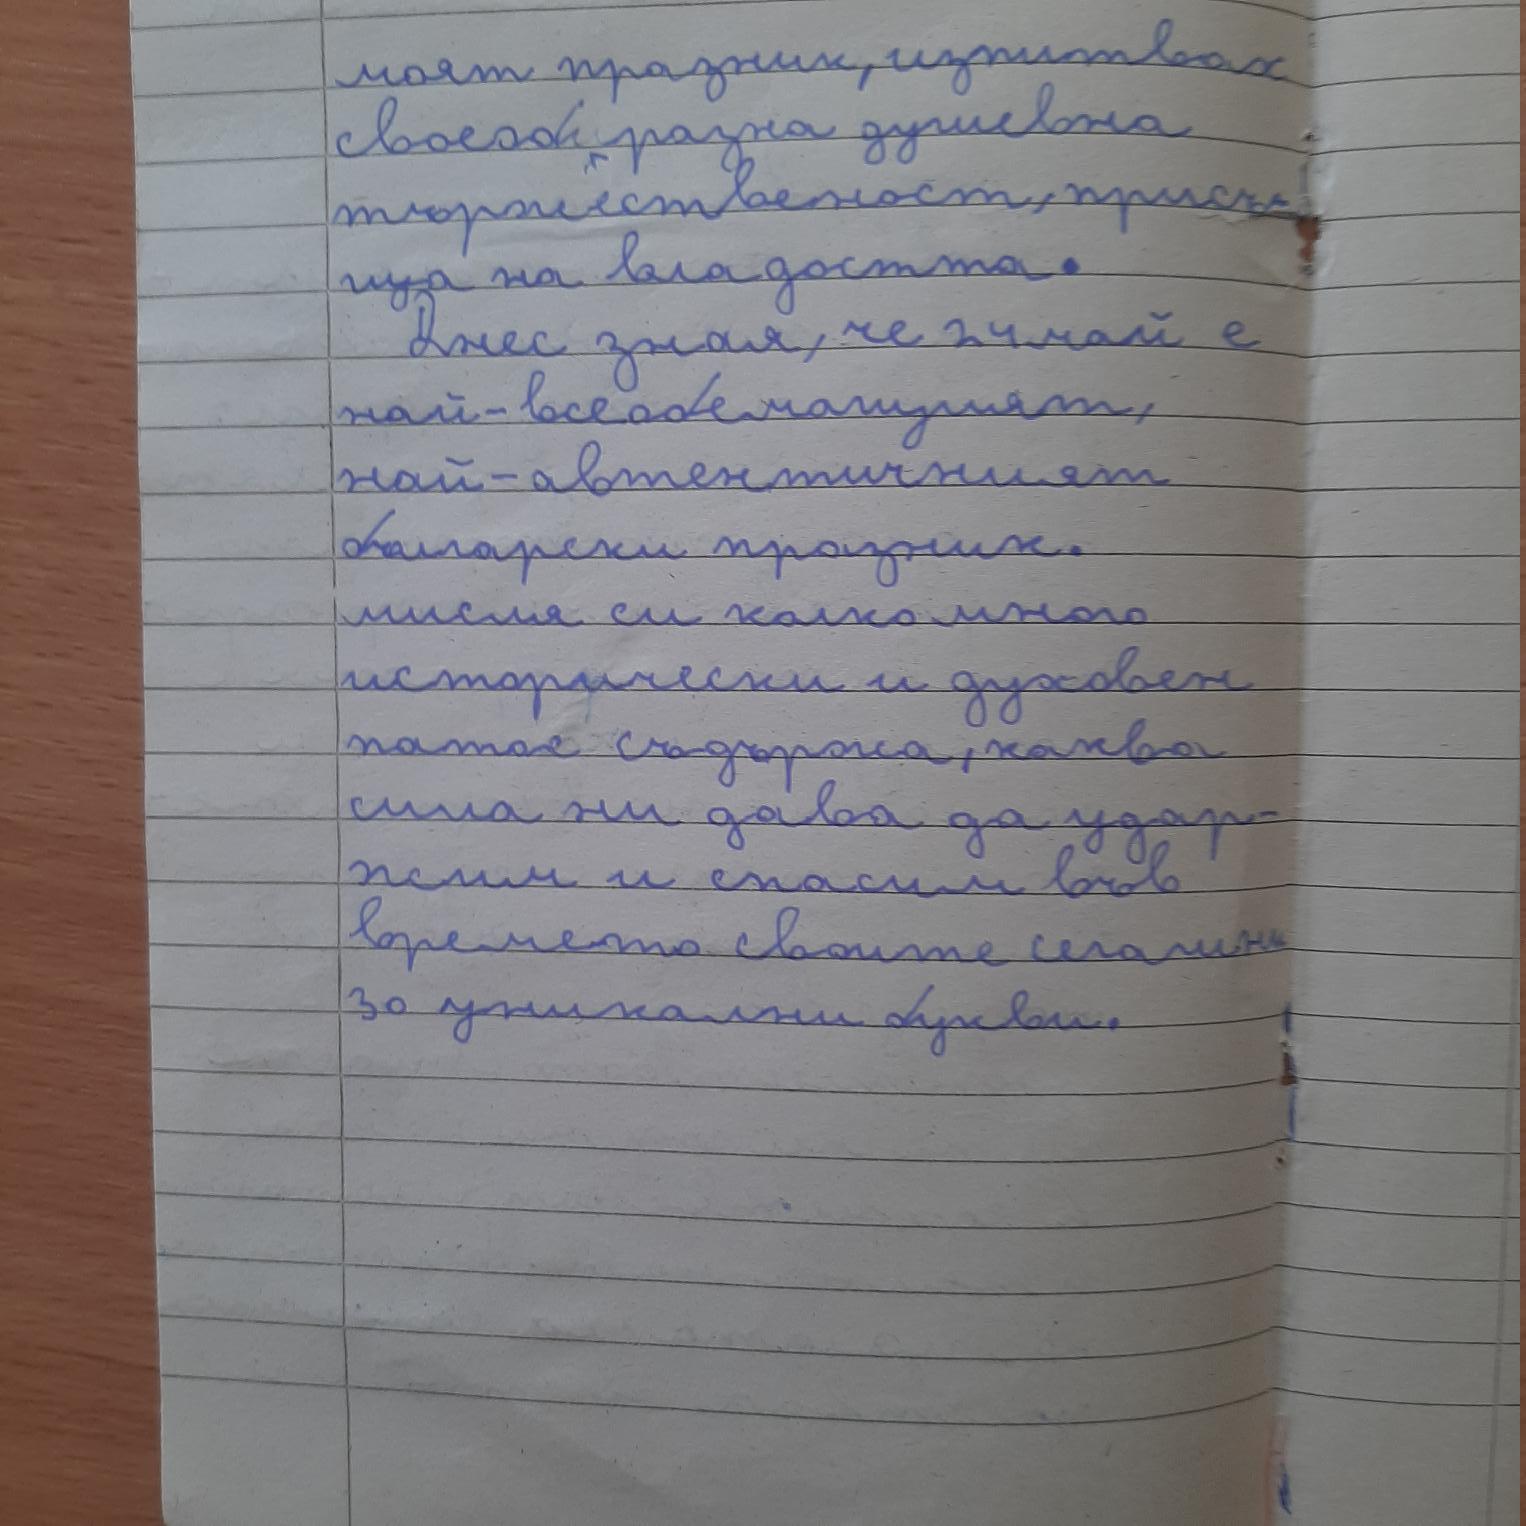 моят празник, изпитвах
своеобразна душевна
тържественост, присъ
ща на младостта.
Днес зная, че 24 май е
най-всеобемащият,
най-автентичният
български празник.
мисля си колко много
исторически и духовен
патос съдържа, каква
сила ни дава да удър-
жим и спасим във
времето своите сега
за уникални букви.